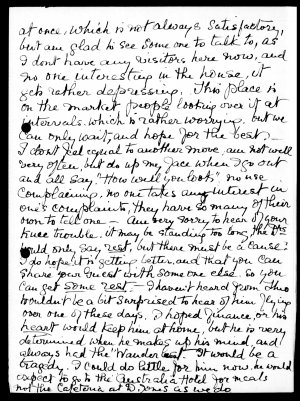 at once, which is not always satisfactory,
but am glad to see some one to talk to, as
I dont have any visitors here now, and
no one interesting in the house, it
gets rather depressing. This place is
on the market people looking over it at
intervals which is rather worrying but we
can only wait, and hope for the best,—
I don't feel equal to another move, am not well
very often, but do up my face when I go out
and all say, "How well you look" no use
complaining, no one takes any interest in
one's complaints, they have so many of their
own to tell one — Am very sorry to hear of your
knee trouble. it may be standing too long, the Drs
would only say rest, but there must be a cause?
I do hope it is getting better, and that you can
share your guest with some one else. so you
can get some rest — I haven't heard from
wouldn't be a bit surprised to hear of him flying
over one of these days. I hoped finance, or his
heart would keep him at home, but he is very
determined when he makes up his mind, and
always had the "Wander lust" It would be a
tragedy. I could do little for him now. he would
expect to go to the Australia Hotel for meals
not the Cafeteria at D. Jones as we do